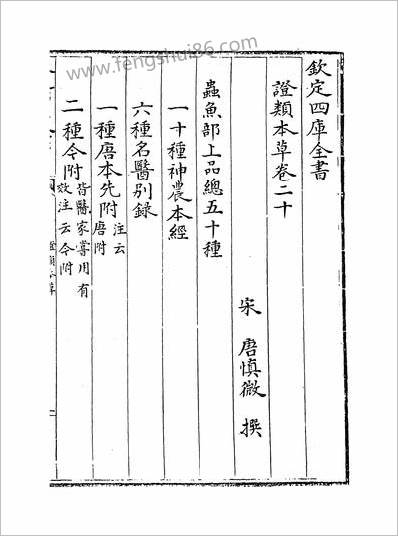 www.fengshui86.com
欽定四庫全書
證類本草卷二十
宋 唐慎微 撰
蟲魚部上品總五十種
一十種神農本經
六種名醫別錄
一種唐本先附注云唐附
二種今附皆醫家嘗用有效注云今附